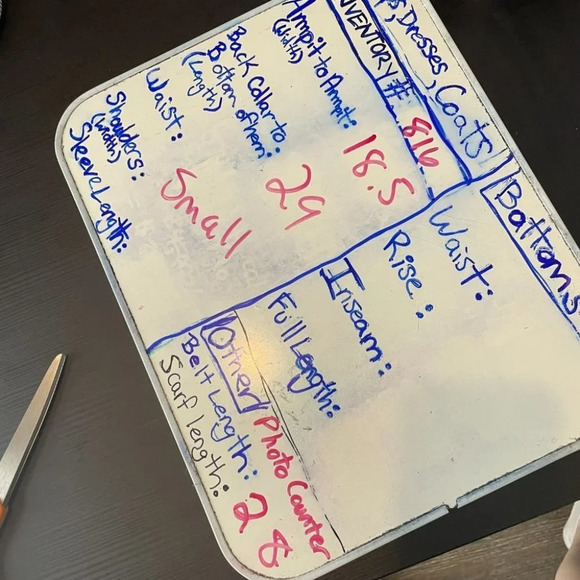 Dresses, Coats
INVENTORY #: 816
Armpit to Armpit: 18.5
(width)
Back Collar to
Bottom of Hem: 29
(Length)
Waist:
Small
Shoulders:
(width)
Sleeve Length:
Bottoms
Waist:
Rise:
Inseam:
Full Length:
Other
Photo Counter
Belt Length:
28
Scarf length: